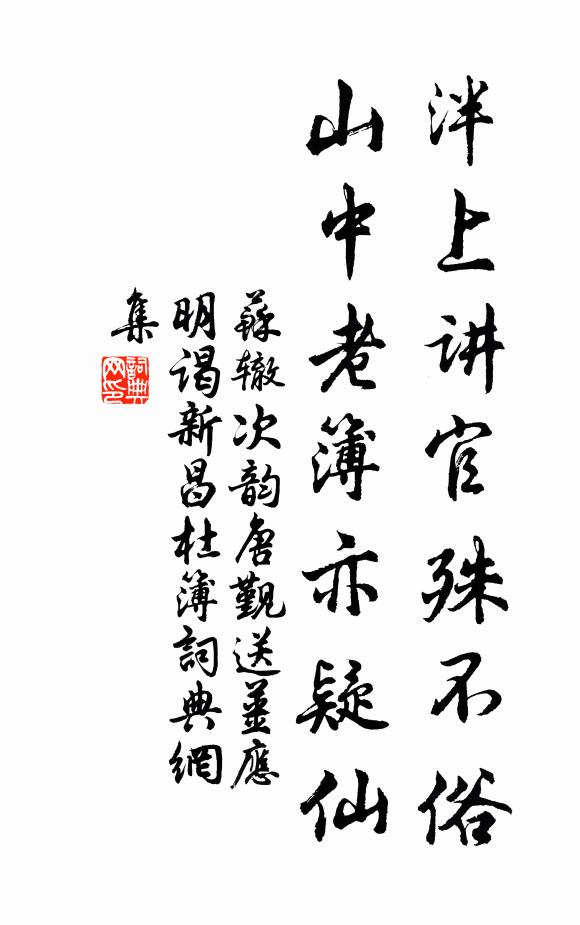 泮上讲官殊不俗
山中老簿亦疑仙
蘇辙次韵唐觐送姜應
明谒新昌杜簿詞典網
集
詞典
网印